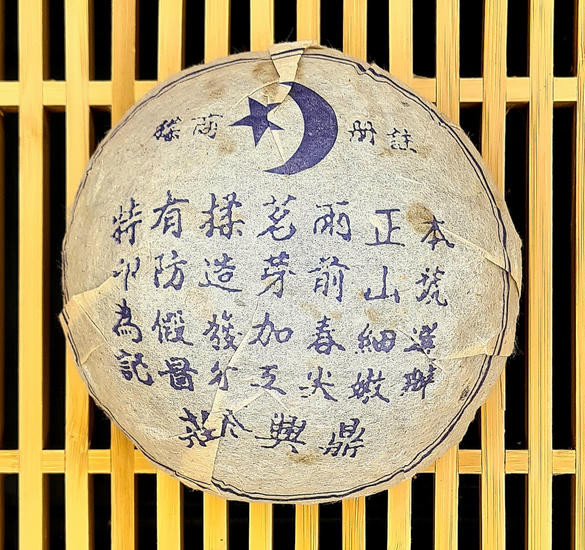 註册商標
本號選辦
正山細嫩
雨前春尖
茗芽加工
揉造發行
有防假冒
特印為記
鼎興莊